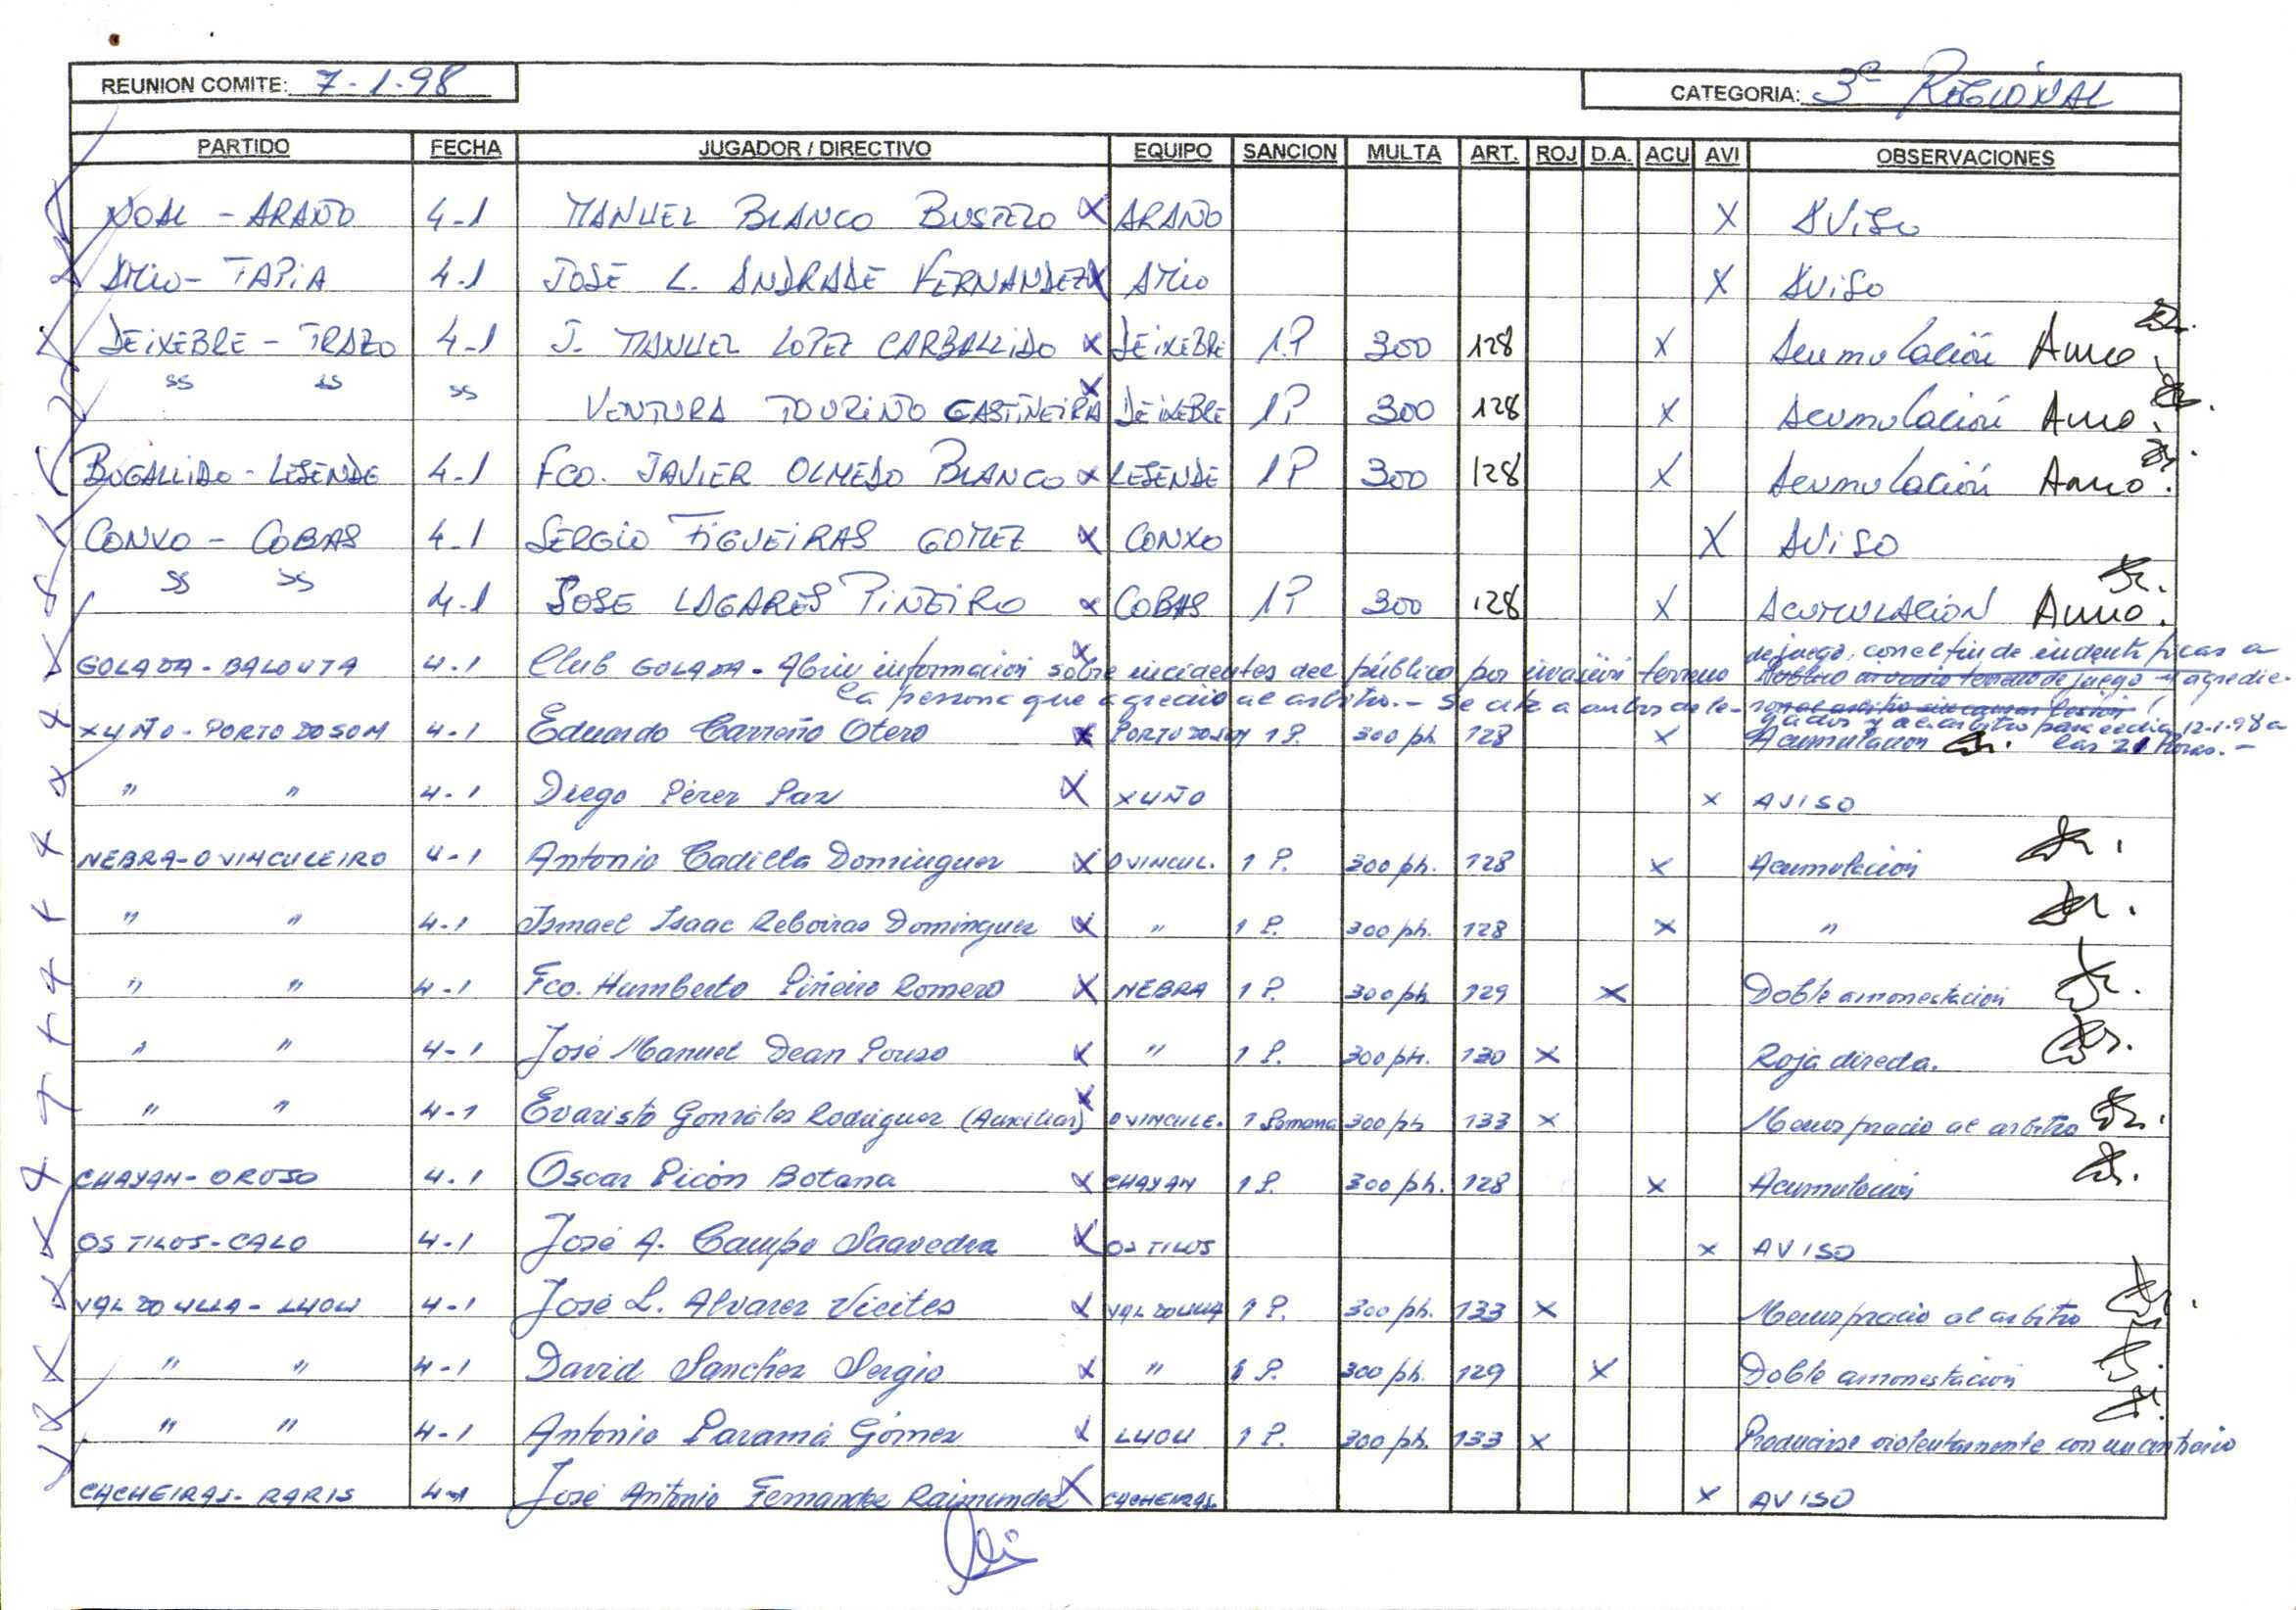 REUNION COMITE: 7-1-98
CATEGORIA: 3ª REGIONAL
PARTIDO FECHA JUGADOR / DIRECTIVO EQUIPO SANCION MULTA ART. ROJ D.A. ACU AVI OBSERVACIONES
NOAL - ARAÑO 4-1 MANUEL BLANCO BUSTELO X ARAÑO X AViSo
AMIO - TAPIA 4-1 JOSE L. ANDRADE FERNANDEZ X AMIO X AViSo
DEIXEBRE - TRAZO 4-1 J. MANUEL LOPEZ CARBALLIDO X DEIXEBRE 1P 300 128 X Acumulación
" " " VENTURA TOURIÑO CASTIÑEIRA X DEIXEBRE 1P 300 128 X Acumulación
BUGALLIDO - LESENDE 4-1 FCO. JAVIER OLMEDO BLANCO X LESENDE 1P 300 128 X Acumulación
CONXO - COBAS 4-1 SERGIO FIGUEIRAS GOMEZ X CONXO X AViSO
" " 4-1 JOSE LAGARES PIÑEIRO X COBAS 1P 300 128 X ACUMULACION
GOLADA - BALOUTA 4-1 Club GOLADA - Abrir información sobre incidentes del público por invasión terreno de juego, con el fin de indentificar a
la persona que agredió al arbitro. - Se cita a ambos delegados y al arbitro para el día 12-1-98 a las 21 horas. -
XUÑO - PORTO DO SON 4-1 Eduardo Carreño Otero X PORTO DO SON 1 P. 300 pts. 128 X Acumulación
" " 4-1 Diego Pérez Paz X XUÑO X AVISO
NEBRA - O VINCULEIRO 4-1 Antonio Cadilla Dominguez X O VINCUL. 1 P. 300 pts. 128 X Acumulación
" " 4-1 Ismael Isaac Reboiras Dominguez X " 1 P. 300 pts. 128 X "
" " 4-1 Fco. Humberto Piñeiro Romero X NEBRA 1 P. 300 pts 129 X Doble amonestación
" " 4-1 José Manuel Dean Pouso X " 1 P. 300 pts. 130 X Roja directa.
" " 4-1 Evaristo González Rodriguez (Auxiliar) X O VINCULE. 1 Semana 300 pts 133 X Menosprecio al arbitro
CHAYAN - OROSO 4-1 Oscar Picón Botana X CHAYAN 1 P. 300 pts. 128 X Acumulación
OS TILOS - CALO 4-1 José A. Campo Saavedra X OS TILOS X AVISO
VAL DO ULLA - LUOU 4-1 José L. Alvarez Vicites X VAL DO ULLA 1 P. 300 pts. 133 X Menosprecio al arbitro
" " 4-1 David Sanchez Sergio X " 1 P. 300 pts. 129 X Doble amonestación
" " 4-1 Antonio Paramá Gómez X LUOU 1 P. 300 pts. 133 X Producirse violentamente con un contrario
CACHEIRAS - RARIS 4-1 José Antonio Fernandez Raimundez X CACHEIRAS X AVISO